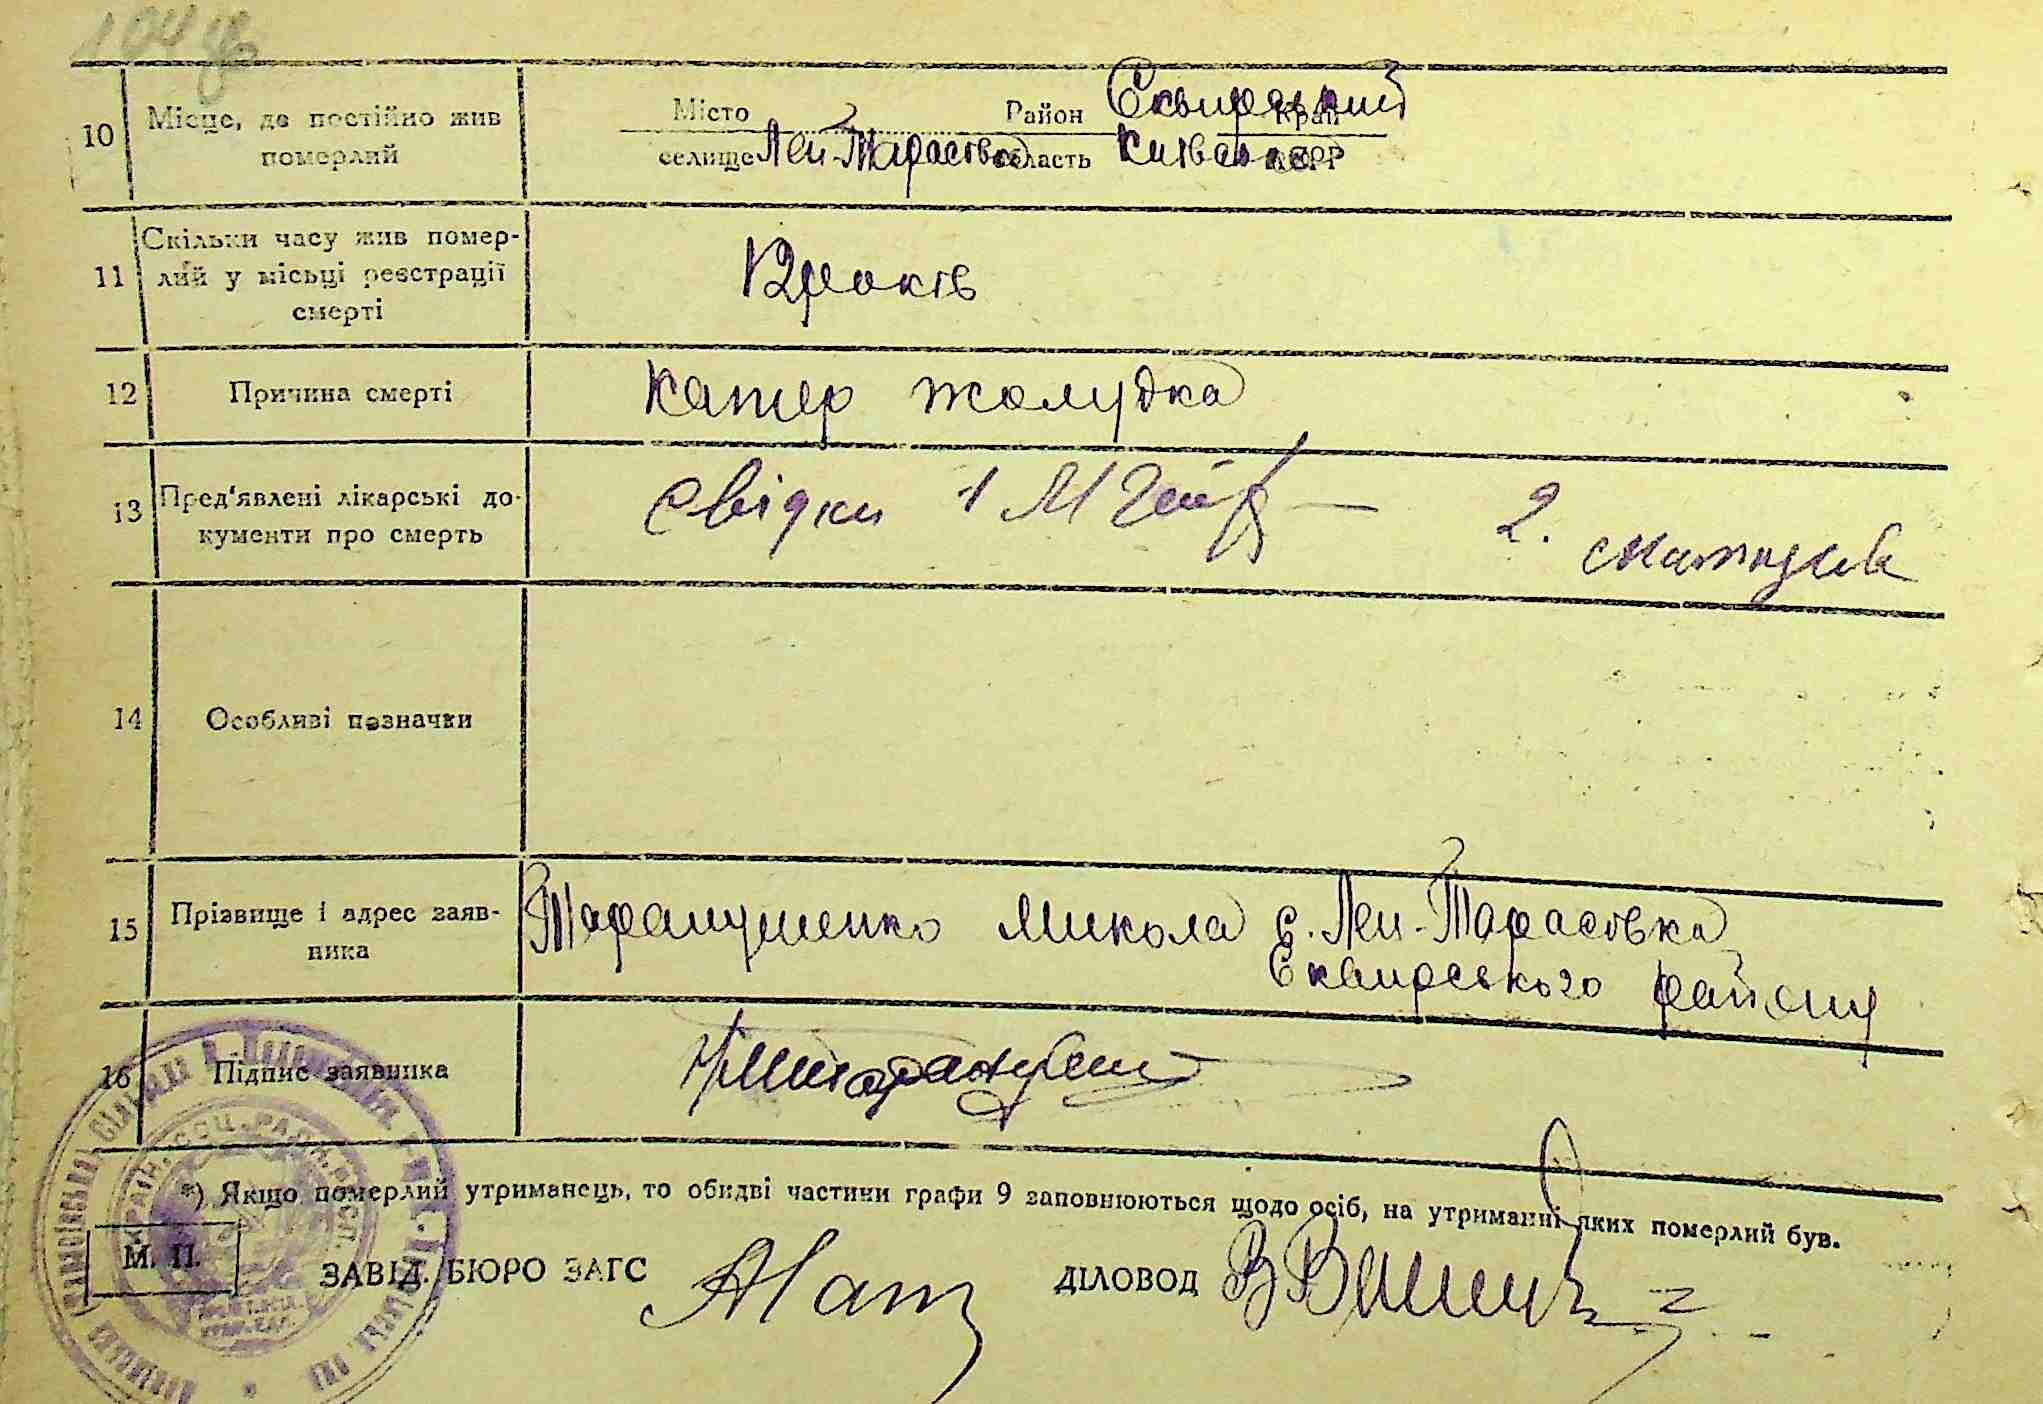 10 Місце, де постійно жив померлий
Місто Район Сквирський Край
селище Лен-Тарасівка область Київська АСРР
11 Скільки часу жив помер-
лий у місці реєстрації
смерті
12 років
12 Причина смерті Катер жолудка
13 Пред'явлені лікарські до-
кументи про смерть
свідки 1 М 2.
14 Особливі позначки
15 Прізвище і адрес заяв-
ника
Таранушенко Микола с. Лен-Тарасівка
Сквирського району
16 Підпис заявника
*) Якщо померлий утриманець, то обидві частини графи 9 заповнюються щодо осіб, на утриманні яких померлий був.
М. П. ЗАВІД. БЮРО ЗАГС ДІЛОВОД